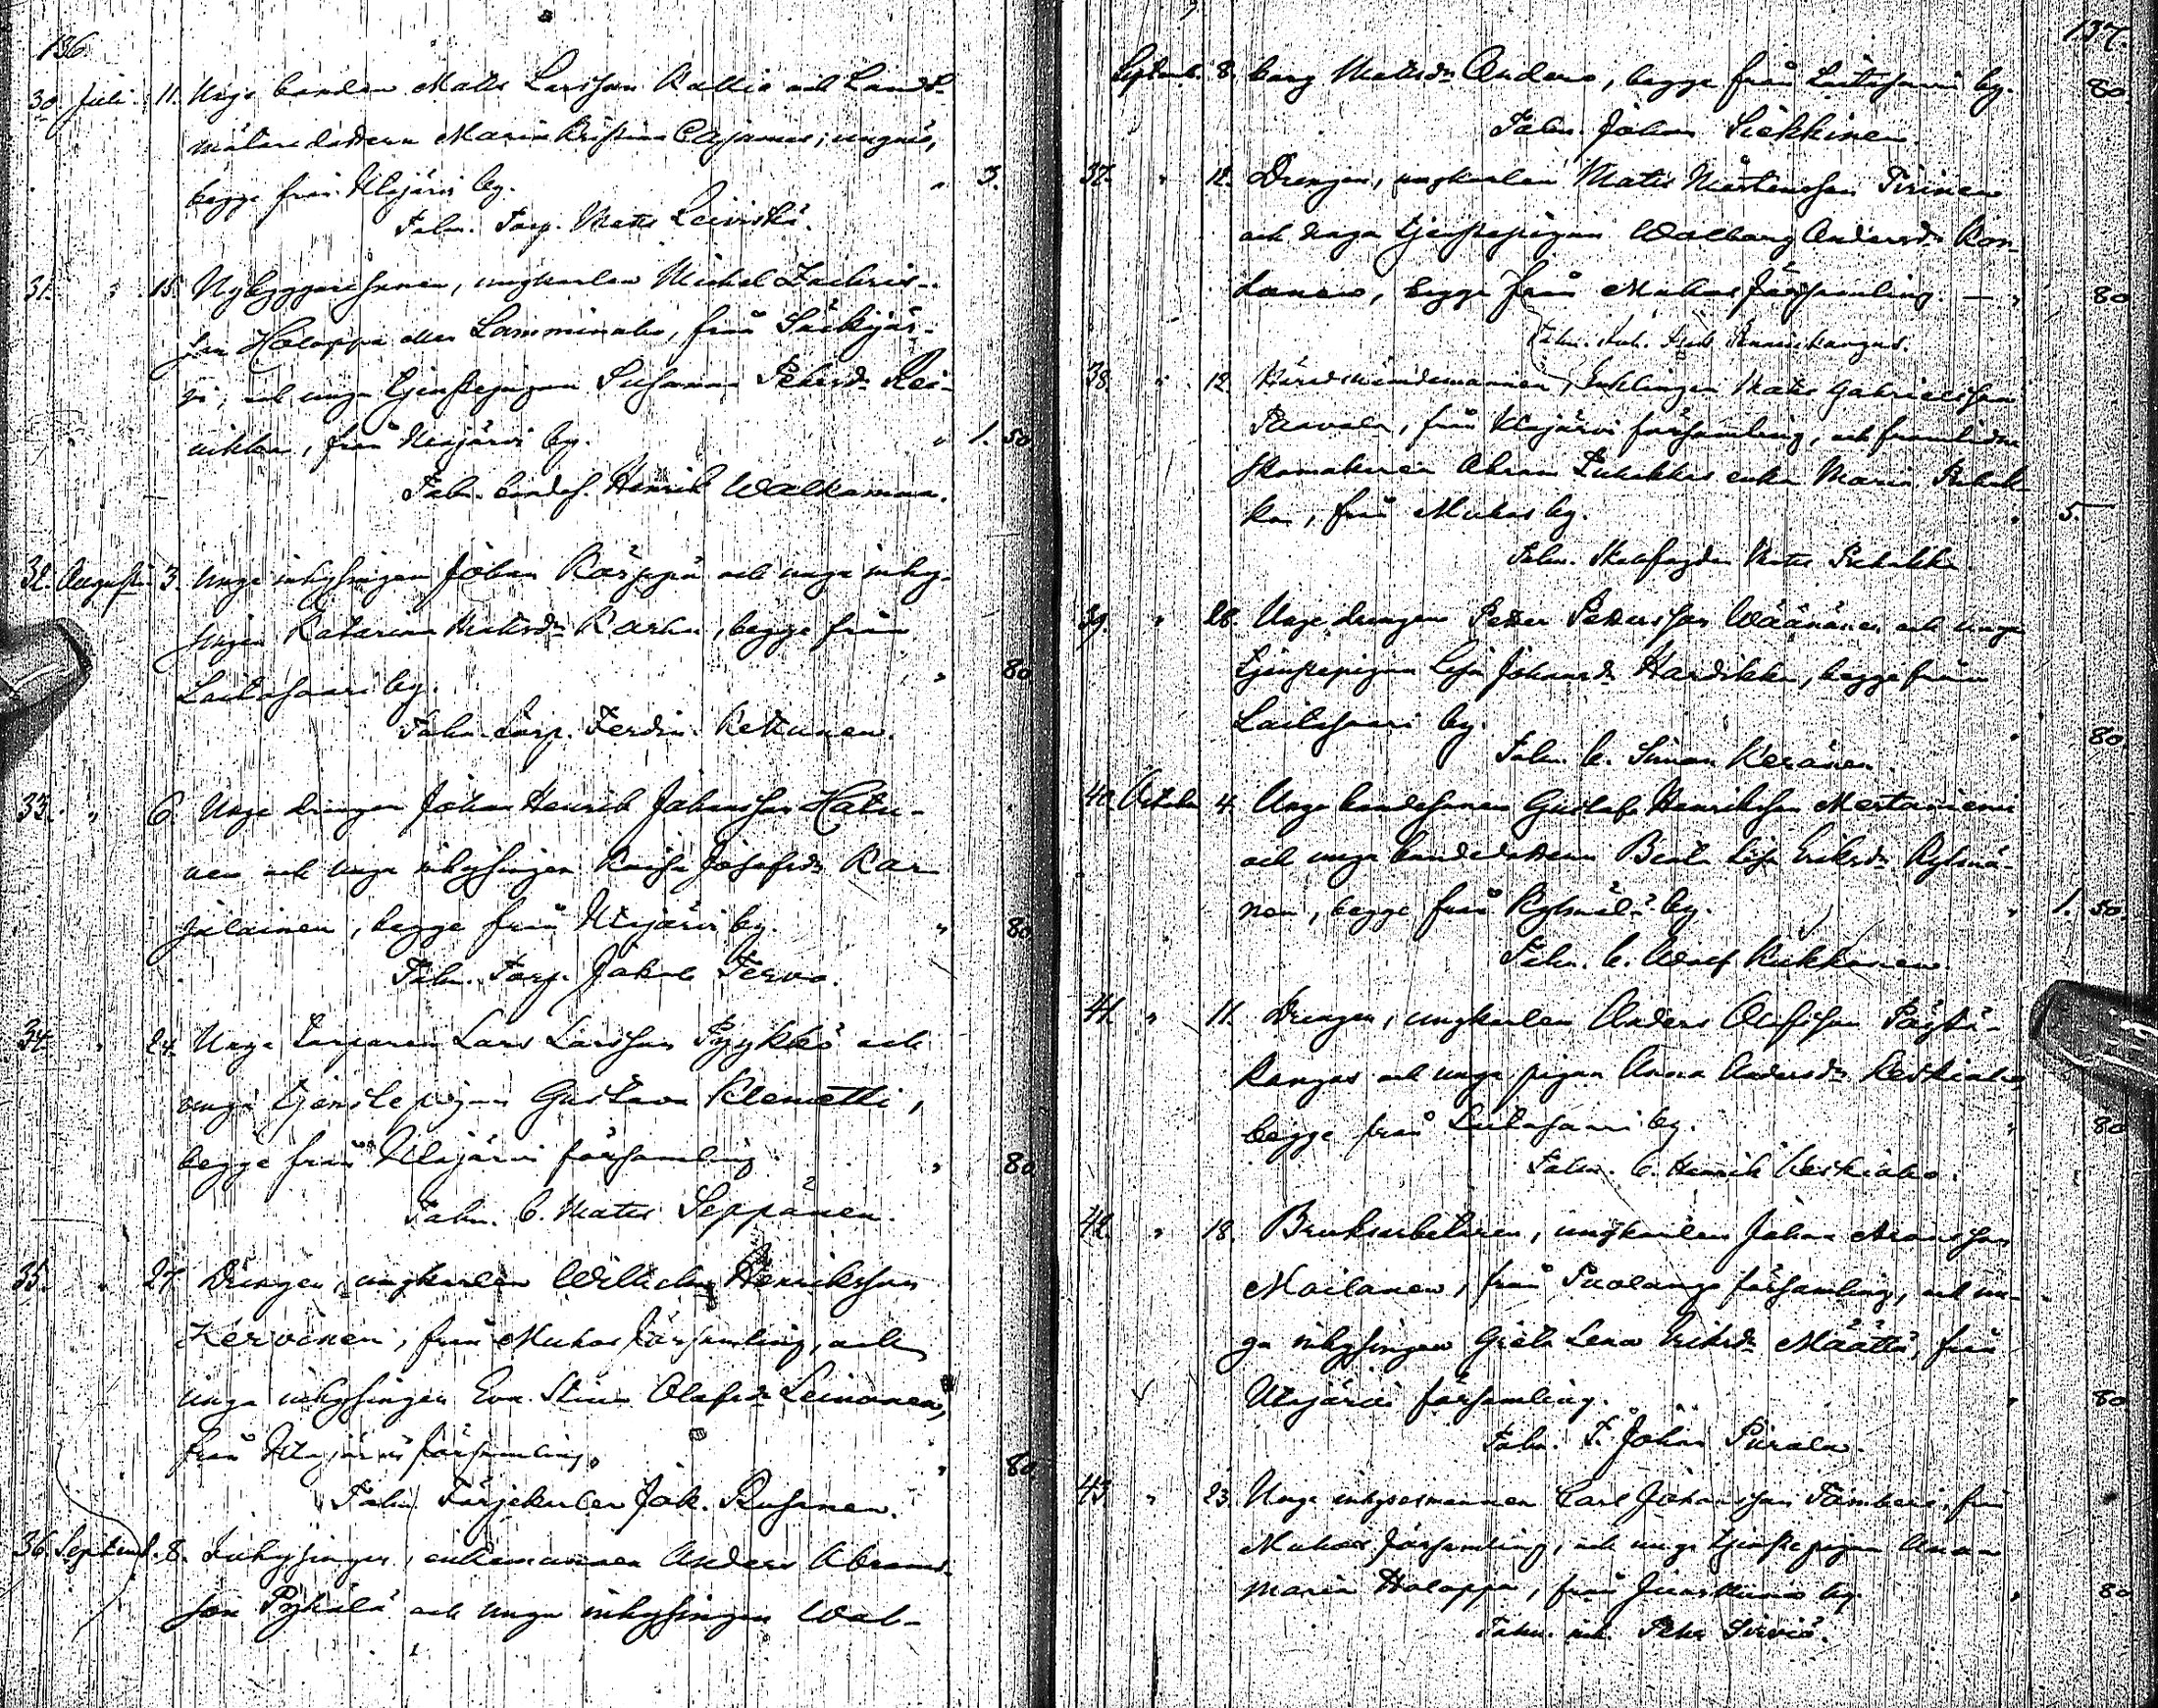 136
30. Juli 11. Unge bonden Matts Larsson Kallio och Landt-
mätare dottren Maria Kristina Cajanus; ungmö,
begge från Utajärvi by. " 3.
Talm. Torp. Matts Leiviskä.
31. " 15. Nybyggaresonen, ungkarlen Michel Zachris-
son Holappa eller Lamminaho, från Säräjär-
vi, och unga tjenstepigan Susanna Petersdr Rei-
nikka, från Utajärvi by. " 1. 50
Talm. bondes. Henrik Walkamaa.
32. Augusti 3. Unge inhysingen Johan Kärppä och unga inhy-
singen Katarina Mattsdr Karhu, begge från
Laitasaari by. " 80
Talm. Torp. Ferdin. Kettunen.
33. " 6. Unge drengen Johan Henrik Johansson Hatu-
nen och unga inhysingen Kaisa Josefsdr Kar-
jalainen, begge från Utajärvi by. " 80
Talm. Torp. Jakob Tervo.
34. " 24. Unge Torparen Lars Larsson Pyykkö och
unga tjenstepigan Gustava Klemetti,
begge från Utajärvi församling " 80
Talm. B. Matts Seppänen.
35. " 27. Drengen, ungkarlen Wilhelm Henriksson
Kervinen, från Muhos församling, och
unga inhysingen Eva Stina Olofsdr Leinonen,
från Utajärvi församling. " 80
Talm. Färjekarlen Jak. Ruhanen.
36. Septemb. 8. Inhysingen, enkemannen Anders Abrams-
son Pyhälä och unga inhysingen Wal-
137.
Septemb. 8. borg Mattsdr Anders, begge från Laitasaari by. 80.
Talm. Johan Siekkinen.
37. " 12. Drengen, ungkarlen Matts Mårtensson Tirinen
och unga tjenstepigan Walborg Andersdr Kon-
tanen, begge från Muhos församling. — " 80
38. " 12. Häradsnämdemannen, Enklingen Matts Gabrielsson
Paavola, från Utajärvi församling, och framlidne
skomakaren Abram Pukakkas enka Maria
från Muhos by. " 5. —
Talm. Skolfogden Matts
39. " 26. Unge drengen Petter Pettersson Wäänänen och unga
tjenstepigan Lisa Johansdr Hardikka, begge från
Laitasaari by. " 80.
Talm. b. Simon Keränen.
40. October 4. Unge bondesonen Gustaf Henriksson Mertaniemi
och unga bondedottren Beata Lisa Eriksdr Kylmä-
nen, begge från Kylmälä by. " 1. 50.
Talm. b. Olof Kukkonen.
41. " 11. Drengen, ungkarlen Anders Olofsson Pöytä-
kangas och unga pigan Anna Andersdr Keskiaho,
begge från Laitasaari by. " 80
Talm. b. Henrik Keskiaho.
42. " 18. Bruksarbetaren, ungkarlen Johan Aronsson
Moilanen, från Puolango församling, och un-
ga inhysingen Greta Lena Eriksdr Määttä, från
Utajärvi församling. " 80
Talm. T. Johan Piirala.
43. " 23. Unge inhysesmannen Carl Johansson Tomberi, från
Muhos församling, och unga tjenstepigan Anna
Maria Holappa, från Juorkuna by. " 80
Talm. inh. Petter Sirviö.